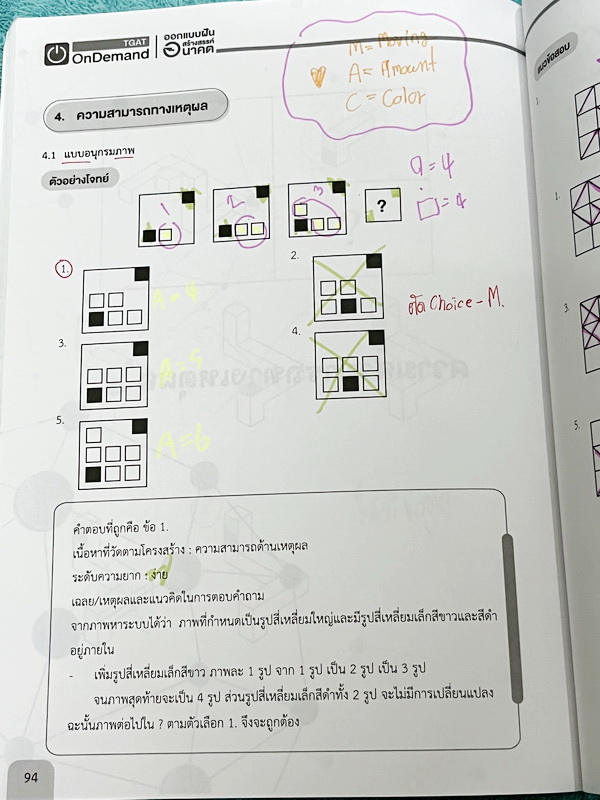 TGAT
OnDemand
ออกแบบฝัน
สร้างสรรค์
อนาคต
M = Moving
A = Amount
C = Color
4. ความสามารถทางเหตุผล
4.1 แบบอนุกรมภาพ
ตัวอย่างโจทย์
a = 4
□ = 4
1 2 3 ?
1.
a = 4
2.
ตัด Choice - M.
3.
4.
5.
A = 6
คำตอบที่ถูกคือ ข้อ 1.
เนื้อหาที่วัดตามโครงสร้าง : ความสามารถด้านเหตุผล
ระดับความยาก : ง่าย
เฉลย/เหตุผลและแนวคิดในการตอบคำถาม
จากภาพหาระบบได้ว่า ภาพที่กำหนดเป็นรูปสี่เหลี่ยมใหญ่และมีรูปสี่เหลี่ยมเล็กสีขาวและสีดำ
อยู่ภายใน
- เพิ่มรูปสี่เหลี่ยมเล็กสีขาว ภาพละ 1 รูป จาก 1 รูป เป็น 2 รูป เป็น 3 รูป
จนภาพสุดท้ายจะเป็น 4 รูป ส่วนรูปสี่เหลี่ยมเล็กสีดำทั้ง 2 รูป จะไม่มีการเปลี่ยนแปลง
ฉะนั้นภาพต่อไปใน ? ตามตัวเลือก 1. จึงจะถูกต้อง
94
แนวข้อสอบ
1.
3.
5.